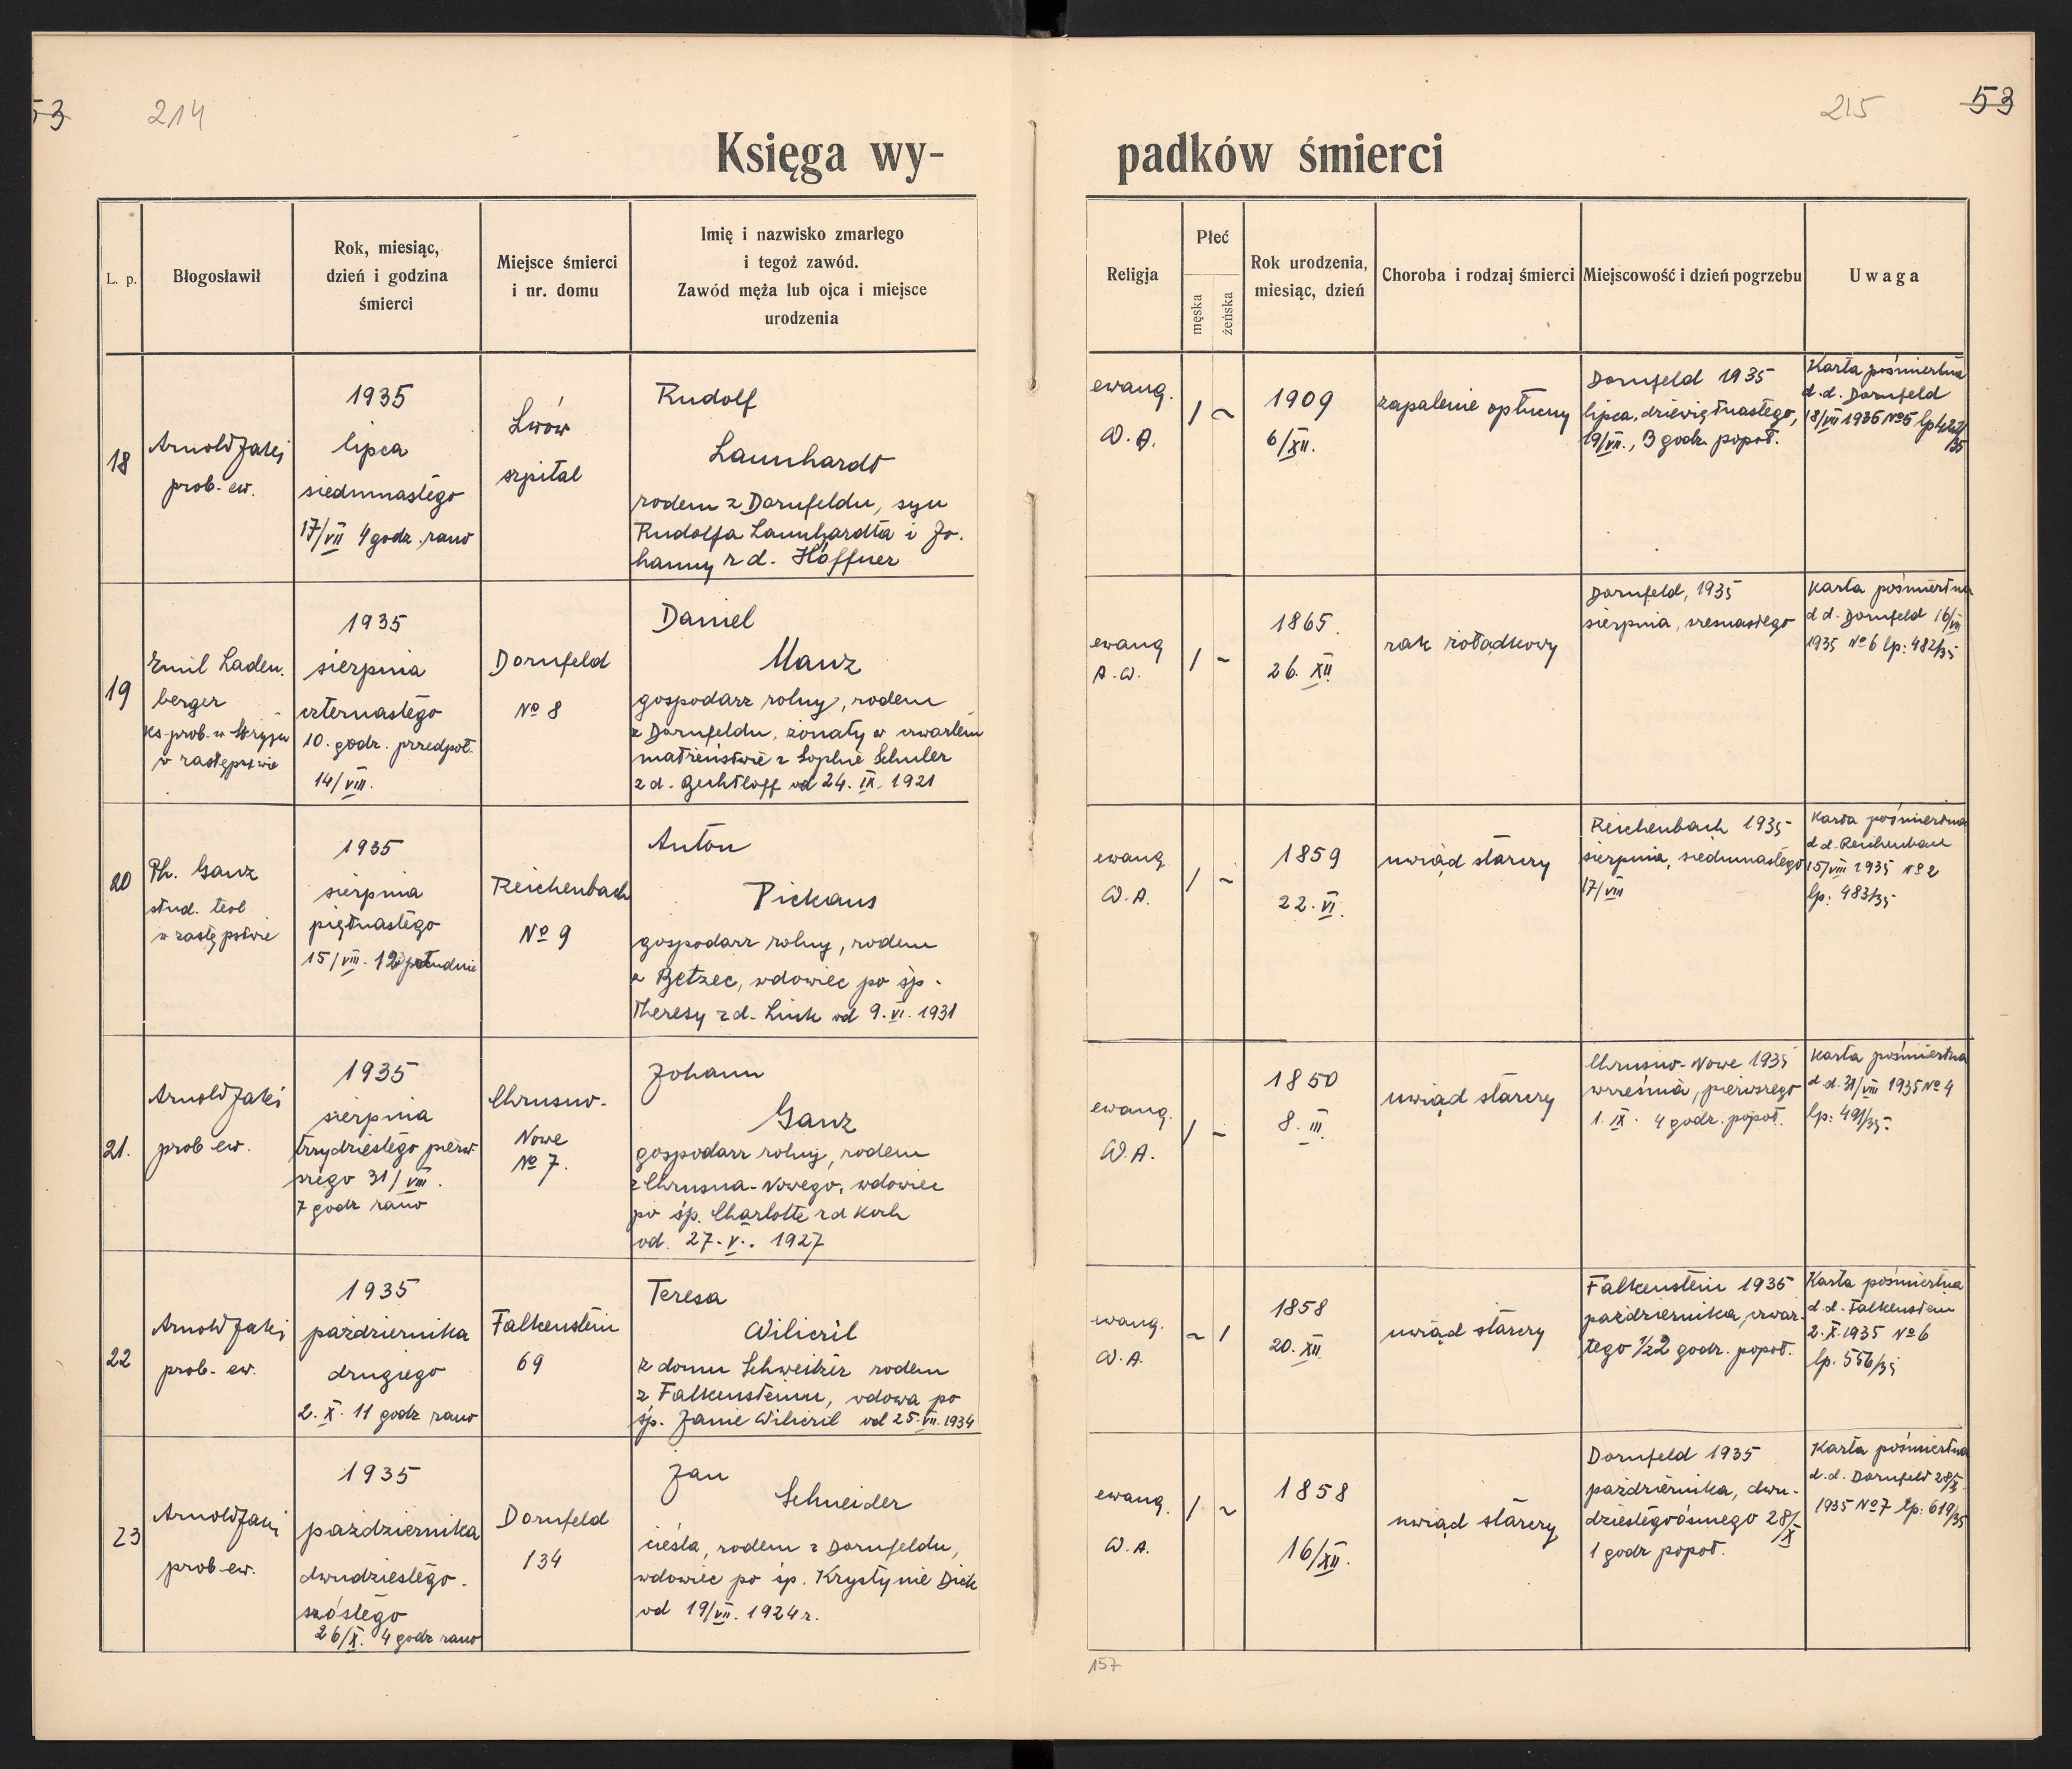 53
214
Księga wy-
L. p.
Błogosławił
Rok, miesiąc,
dzień i godzina
śmierci
Miejsce śmierci
i nr. domu
Imię i nazwisko zmarłego
i tegoż zawód.
Zawód męża lub ojca i miejsce
urodzenia
18
Arnold Jaki
prob. ew.
1935
lipca
siedmnastego
17/VII 4 godz. rano
Lwów
szpital
Rudolf
Launhardt
rodem z Dornfeldu, syn
Rudolfa Launhardta i Jo-
hanny z d. Höffner
19
Emil Laden-
berger
ks. prob. w Stryju
w zastępstwie
1935
sierpnia
czternastego
10. godz. przedpoł.
14/VIII.
Dornfeld
№ 8
Daniel
Manz
gospodarz rolny, rodem
z Dornfeldu, żonaty w czwartem
małżeństwie z Sophie Schuler
z d. od 24. IX. 1921
20
Ph. Ganz
stud. teol
w zastępstwie
1935
sierpnia
piętnastego
15/VIII. 12 południe
Reichenbach
№ 9
Anton
Pickaus
gospodarz rolny, rodem
z Bełzec, wdowiec po śp.
Theresy z d. Link od 9. VI. 1931
21.
Arnold Jaki
prob ew.
1935
sierpnia
trzydziestego pierw-
szego 31/VIII.
7 godz rano
Chrusno-
Nowe
№ 7.
Johann
Ganz
gospodarz rolny, rodem
z Chrusna-Nowego, wdowiec
po śp. Charlotte z d Koch
od. 27. V. 1927
22
Arnold Jaki
prob. ew.
1935
października
drugiego
2. X. 11 godz rano
Falkenstein
69
Teresa
Wiliczil
z domu Schweitzer rodem
z Falkensteinu, wdowa po
śp. Janie Wiliczil od 25. VII. 1934
23
Arnold Jaki
prob ew.
1935
października
dwudziestego-
szóstego
26/X. 4 godz rano
Dornfeld
134
Jan
Schneider
cieśla, rodem z Dornfeldu,
wdowiec po śp. Krystynie Dick
od 19/VII. 1924 r.
215
53
padków śmierci
Religja
Płeć
męska
żeńska
Rok urodzenia,
miesiąc, dzień
Choroba i rodzaj śmierci
Miejscowość i dzień pogrzebu
Uwaga
ewang.
W. A.
/ ~
1909
6/XII.
zapalenie opłucny
Dornfeld 1935
lipca, dziewiętnastego,
19/VII., 3 godz. popoł.
Karta pośmiertna
d. d. Dornfeld
18/VII 1935 №5
ewang
A. W.
/ ~
1865.
26. XII.
rak żołądkowy
Dornfeld, 1935
sierpnia, szesnastego
Karta pośmiertna
d d. Dornfeld 16/VIII
1935 №6 lp: 482/35
ewang
W. A.
/ ~
1859
22. VI.
uwiąd starczy
Reichenbach 1935
sierpnia, siedmnastego
17/VIII
Karta pośmiertna
d d. Reichenbach
15/VIII 1935 №2
lp: 483/35
ewang.
W. A.
/ ~
1850
8. III.
uwiąd starczy
Chrusno-Nowe 1935
września, pierwszego
1. IX. 4 godz. popoł.
Karta pośmiertna
d. d. 31/VIII 1935 №4
lp: 491/35
ewang.
W. A.
~ /
1858
20. XII
uwiąd starczy
Falkenstein 1935
października, czwar-
tego 1/2 2 godz. popoł.
Karta pośmiertna
d. d. Falkenstein
2. X. 1935 №6
lp. 556/35
ewang.
W. A.
/ ~
1858
16/XII.
uwiąd starczy
Dornfeld 1935
października, dwu-
dziestegoósmego 28/X
1 godz popoł.
Karta pośmiertna
d. d. Dornfeld 28/X
1935 №7 lp: 619/35
157